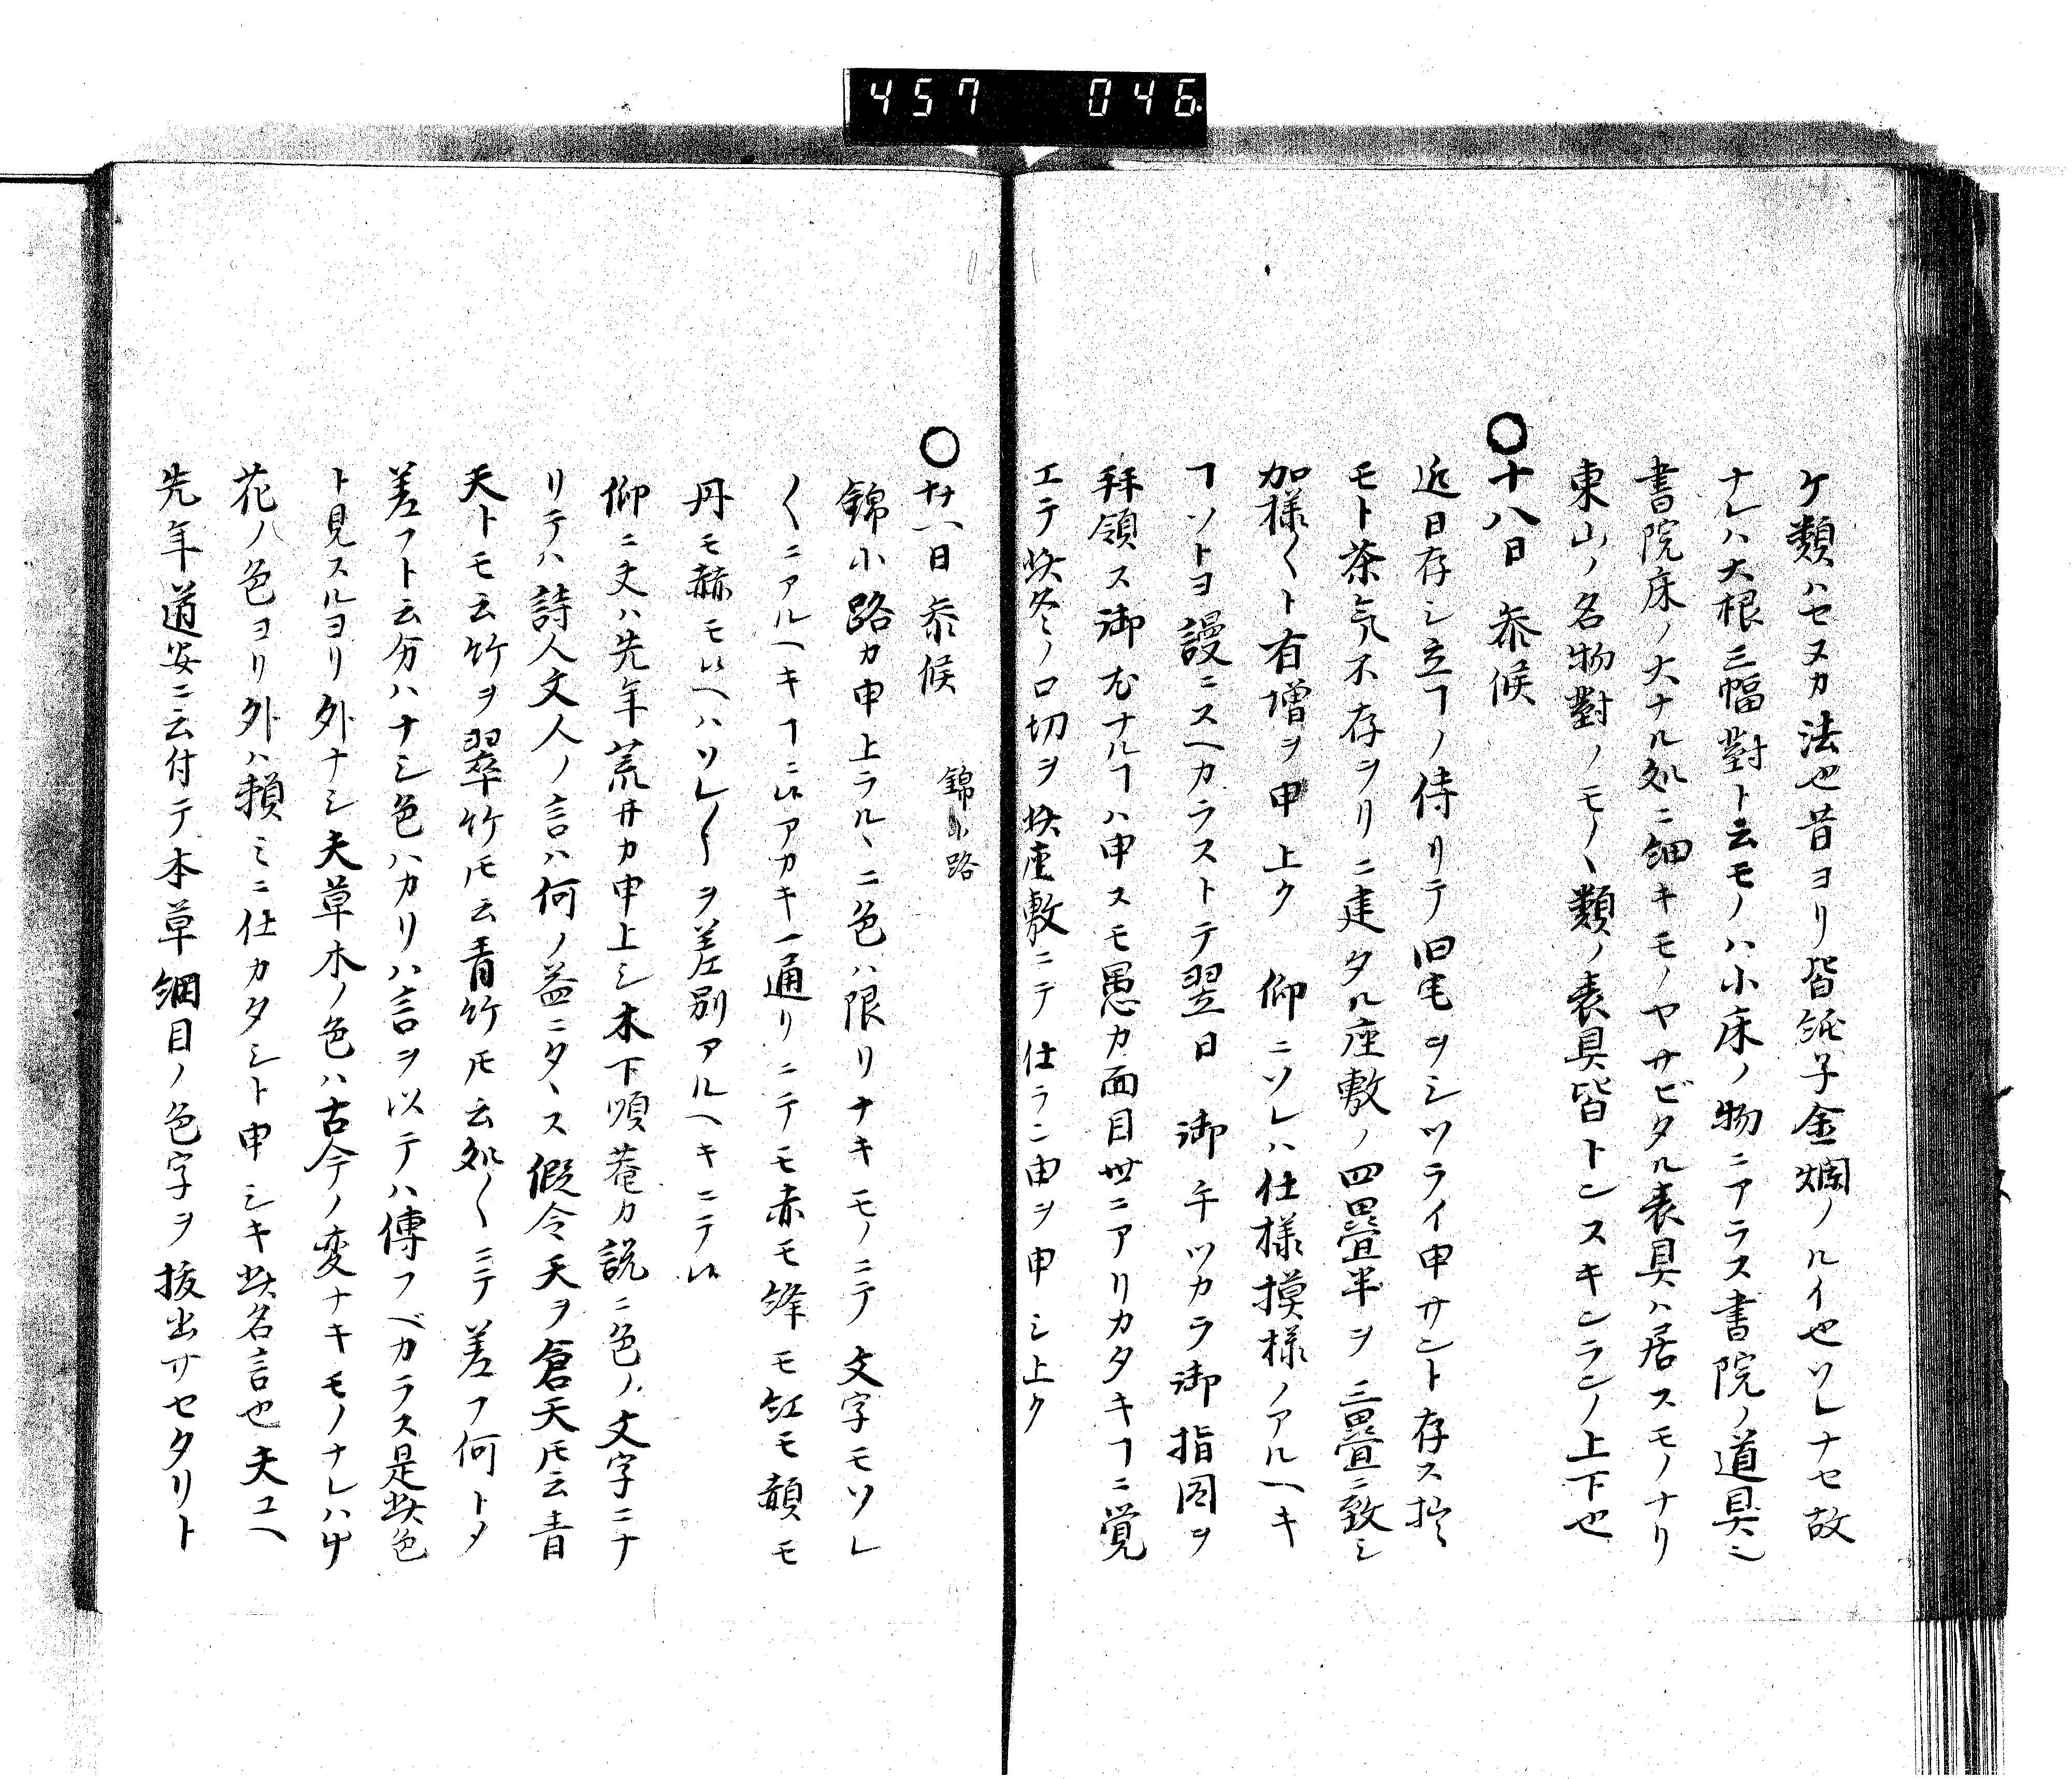 457 046
ケ類ハセヌカ法也昔ヨリ皆純子金襴ノルイ也ソレナセ故
ナレハ大根三幅對ト云モノハ小床ノ物ニアラス書院ノ道具ニ
書院床ノ大ナル処ニ細キモノヤサビタル表具ハ居スモノナリ
東山ノ名物對ノモノヽ類ノ表具皆トンスキンランノ上下也
〇十八日 参候
近日存シ立ヿノ侍リテ旧宅ヲシツライ申サント存ス抔
モト茶気不存ヲリニ建タル座敷ノ四畳半ヲ三畳ニ致シ
加様〱ト有増ヲ申上ク 仰ニソレハ仕様摸様ノアルヘキ
ヿソトヨ謾ニスヘカラストテ翌日 御手ツカラ御指図ヲ
拝領ス御尤ナルヿハ申スモ愚カ面目世ニアリカタキヿニ覚
エテ此冬ノ口切ヲ此座敷ニテ仕ラン由ヲ申シ上ク
〇廿一日参候 錦小路
錦小路カ申上ラルヽニ色ハ限リナキモノニテ文字モソレ
〱ニアルヘキヿニ候アカキ一通リニテモ赤モ絳モ紅モ頳モ
丹モ赫モ候ヘハソレ〱ヲ差別アルヘキニテ候
仰ニ夫ハ先年荒井カ申上シ木下順菴カ説ニ色ノ文字ニナ
リテハ詩人文人ノ言ハ何ノ益ニタヽス假令天ヲ倉天𪜈云青
天トモ云竹ヲ翠竹𪜈云青竹𪜈云処〱ニテ差フ何トメ
差フト云分ハナシ色ハカリハ言ヲ以テハ傳フベカラス是此色
ト見スルヨリ外ナシ夫草木ノ色ハ古今ノ変ナキモノナレハ中
花ノ色ヨリ外ハ頼ミニ仕カタシト申シキ此名言也夫ユヘ
先年道安ニ云付テ本草綱目ノ色字ヲ抜出サセタリト